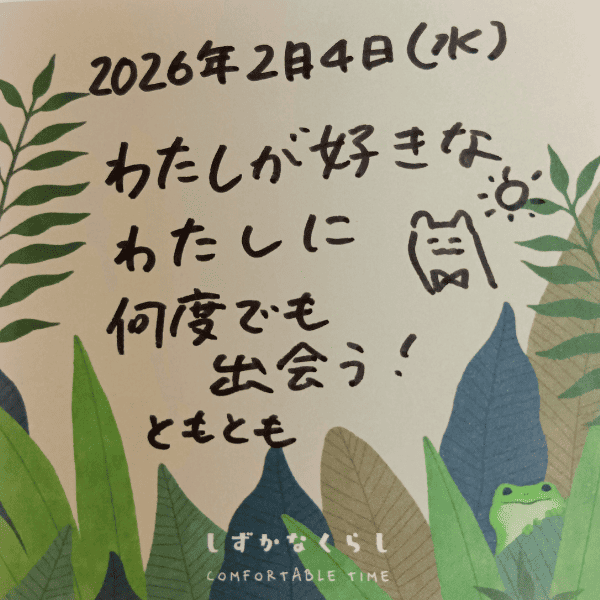 2026年2月4日(水)
わたしが好きな
わたしに
何度でも
出会う!
ともとも
しずかなくらし
COMFORTABLE TIME